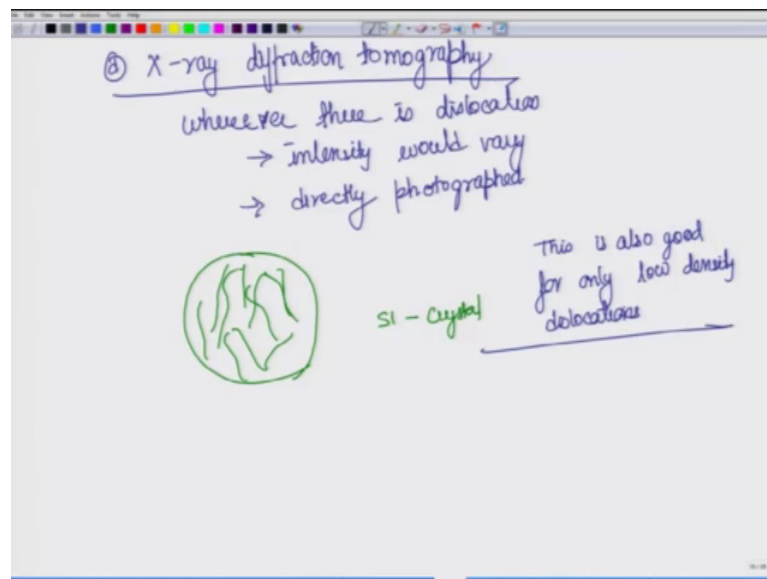 ⓓ X-ray diffraction tomography
wherever there is dislocation
→ intensity would vary
→ directly photographed
This is also good
for only low density
dislocations
Si - Crystal